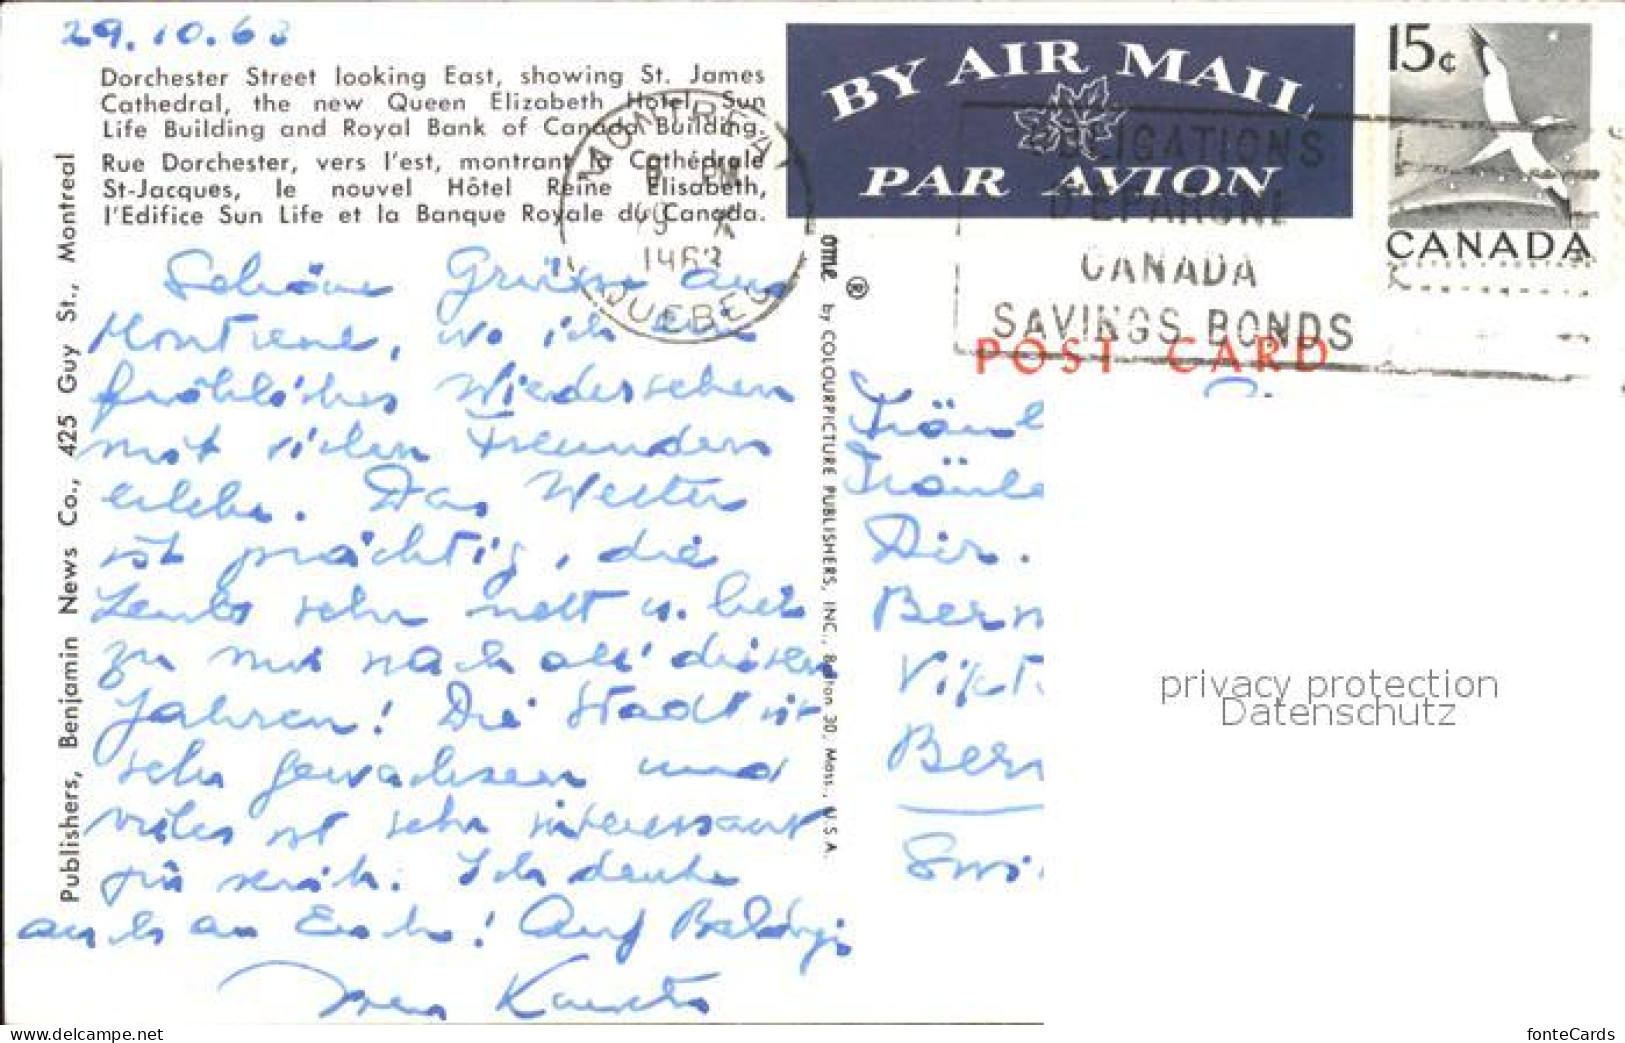 29.10.63
Dorchester Street looking East, showing St. James
Cathedral, the new Queen Elizabeth Hotel, Sun
Life Building and Royal Bank of Canada Building.
Rue Dorchester, vers l'est, montrant la Cathédrale
St-Jacques, le nouvel Hôtel Reine Elisabeth,
l'Edifice Sun Life et la Banque Royale du Canada.
Publishers, Benjamin News Co., 425 Guy St., Montreal
Schöne Grüsse aus
wo ich ein
fröhliches Wiedersehen
mit Freunden
erlebe. Das Wetter
ist prächtig, die
Leute sehr nett u. lieb
zu mir nach all' diesen
Jahren! Die Stadt ist
sehr gewachsen und
vieles ist sehr interessant
für mich. Ich denke
auch an Euch! Auf Baldiges
by COLOURPICTURE PUBLISHERS, INC., Boston 30, Mass., U.S.A.
®
MONTREAL
PM
X
1963
QUEBEC
BY AIR MAIL
PAR AVION
OBLIGATIONS
D'EPARGNE
CANADA
SAVINGS BONDS
15c
CANADA
POSTES · POSTAGE
POST CARD
Dir.
Bern
Vikt
Bern
privacy protection
Datenschutz
www.ansichtskarten-center.de
fonteCards